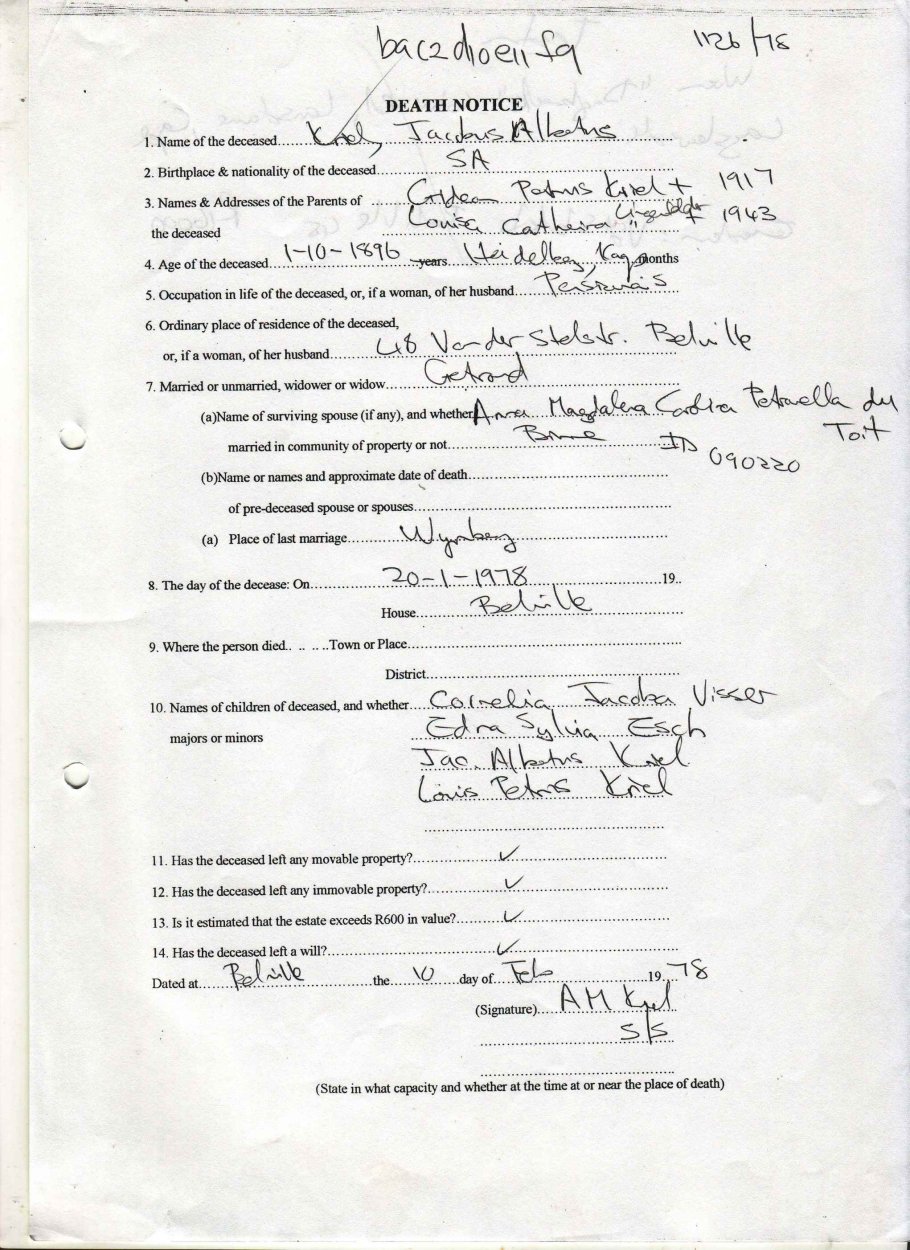 bac2d10e11f9 1126/78
DEATH NOTICE
1. Name of the deceased Kriel, Jacobus Albertus
2. Birthplace & nationality of the deceased SA
3. Names & Addresses of the Parents of Petrus Kriel + 1917
the deceased Louisa Catheira + 1943
4. Age of the deceased 1-10-1896 years Heidelberg, months
5. Occupation in life of the deceased, or, if a woman, of her husband
6. Ordinary place of residence of the deceased,
or, if a woman, of her husband 48 Van der Stelstr. Belville
7. Married or unmarried, widower or widow Getroud
(a)Name of surviving spouse (if any), and whether Anna Magdalena Petronella du Toit
married in community of property or not Binne ID 090220
(b)Name or names and approximate date of death
of pre-deceased spouse or spouses
(a) Place of last marriage Wynberg
8. The day of the decease: On 20-1-1978 19..
House Belville
9. Where the person died.. .. .. ..Town or Place
District
10. Names of children of deceased, and whether Cornelia Jacoba Visser
majors or minors Edna Sylvia Esch
Jac. Albertus Kriel
Louis Petrus Kriel
11. Has the deceased left any movable property? ✓
12. Has the deceased left any immovable property? ✓
13. Is it estimated that the estate exceeds R600 in value? ✓
14. Has the deceased left a will? ✓
Dated at Belville the 10 day of Feb 19 78
(Signature) A M Kriel
S/S
(State in what capacity and whether at the time at or near the place of death)